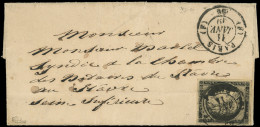 Monsieur
Monsieur
Syndic de la Chambre
des Notaires du Havre
au Havre
Seine Inférieure
PARIS
11
JANV